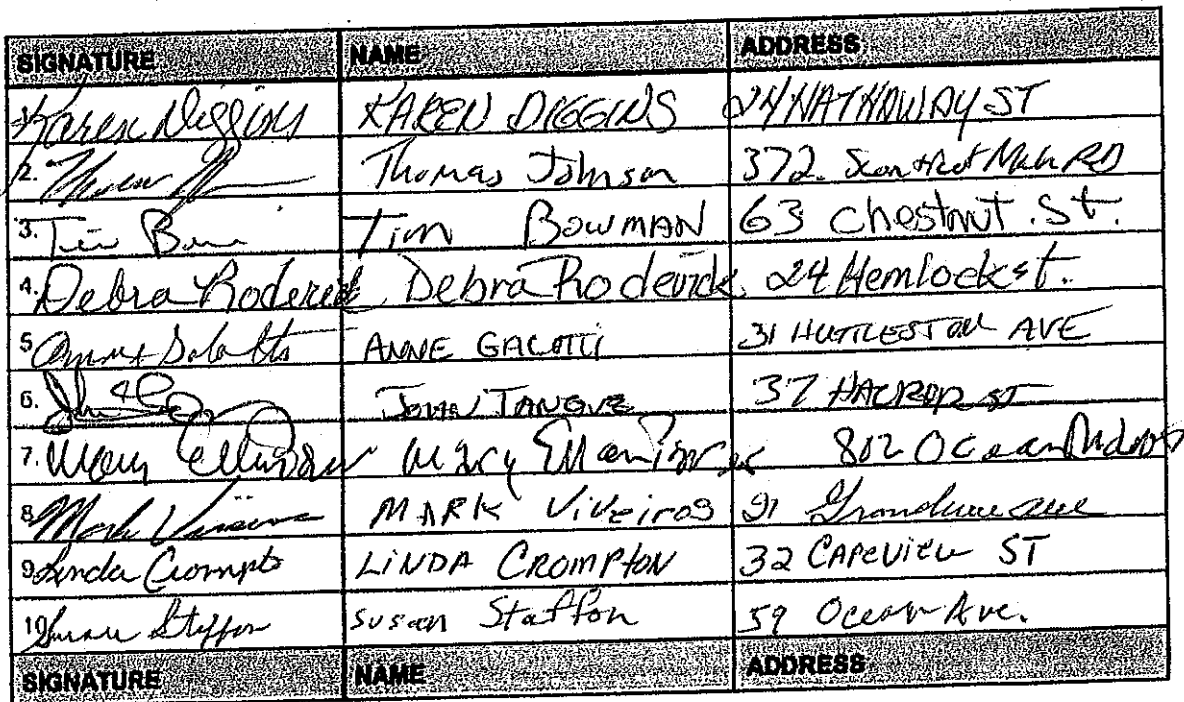 SIGNATURE NAME ADDRESS
Karen Diggins KAREN DIGGINS 24 HATHAWAY ST
2. Thomas Johnson 372 Rd
3. Tim Bowman Tim BOWMAN 63 Chestnut St.
4. Debra Roderick Debra Roderick 24 Hemlock st.
5 ANNE 31 HUTTLESTON AVE
6. JOHN 37 ST
7. Mary Ellen Mary Ellen 802 Ocean
8 Mark Viveiros MARK Viveiros Grandview ave
9 Linda Crompton LINDA CROMPTON 32 CAPEVIEW ST
10 Susan Steffon Susan Staffon 59 Ocean Ave.
SIGNATURE NAME ADDRESS